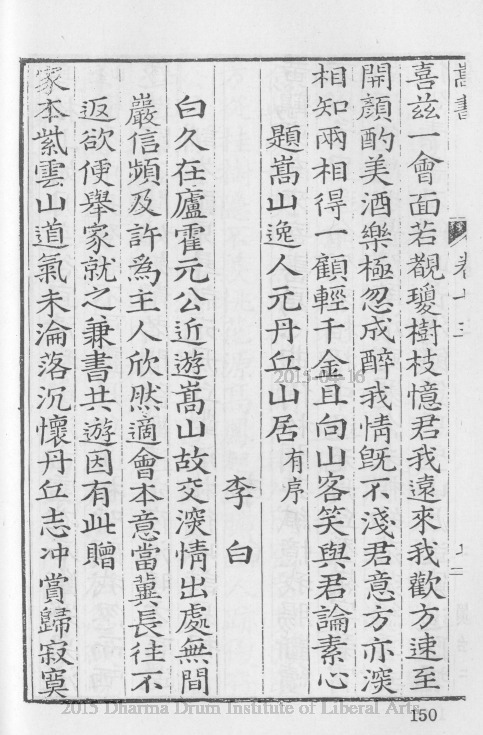 嵩書
卷十三
喜茲一會面若覩瓊樹枝憶君我遠來我歡方速至
開顏酌美酒樂極忽成醉我情旣不淺君意方亦深
相知兩相得一顧輕千金且向山客笑與君論素心
題嵩山逸人元丹丘山居有序
李白
白久在廬霍元公近遊嵩山故交深情出處無間
巖信頻及許爲主人欣然適會本意當冀長往不
返欲便舉家就之兼書共遊因有此贈
家本紫雲山道氣未淪落沉懷丹丘志冲賞歸寂寞
2015-04-16
2015 Dharma Drum Institute of Liberal Arts
150